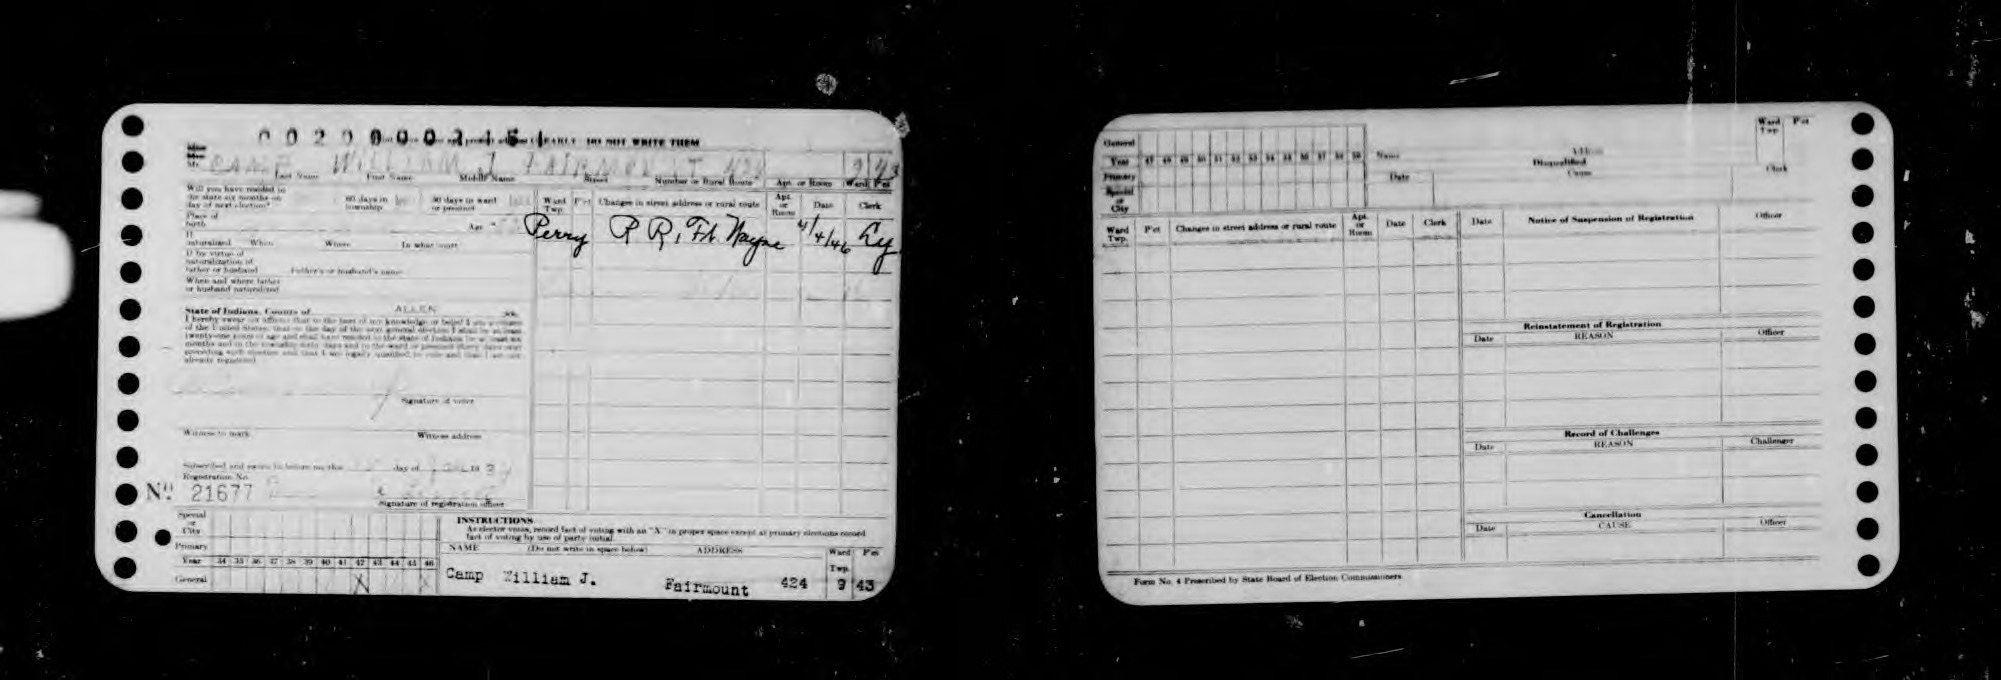 PLAINLY. DO NOT WRITE THEM
Miss
Mrs.
Mr. CAMP WILLIAM J FAIRMOUNT 424 9 43
Last Name First Name Middle Name Street Number or Rural Route Apt. or Room Ward P'ct
Will you have resided in
the state six months on
day of next election?
60 days in
township
30 days in ward
or precinct
Place of
birth
Age
If
naturalized When Where In what court
If by virtue of
naturalization of
father or husband Father's or husband's name
When and where father
or husband naturalized
State of Indiana, County of ALLEN ss.
I hereby swear or affirm that to the best of my knowledge or belief I am a citizen
of the United States, that on the day of the next general election I shall be at least
twenty-one years of age and shall have resided in the state of Indiana for at least six
months and in the township sixty days and in the ward or precinct thirty days next
preceding such election and that I am legally qualified to vote and that I am not
already registered.
Signature of voter
Witness to mark Witness address
Subscribed and sworn to before me this day of 19
Registration No.
No. 21677
Signature of registration officer
Ward Twp. P'ct Changes in street address or rural route Apt. or Room Date Clerk
Perry R R, Ft. Wayne 4/4/46
Special
or
City
Primary
Year 34 35 36 37 38 39 40 41 42 43 44 45 46
General X X
INSTRUCTIONS
As elector votes, record fact of voting with an "X" in proper space except at primary elections record
fact of voting by use of party initial.
NAME (Do not write in space below) ADDRESS Ward Twp. P'ct
Camp William J. Fairmount 424 9 43
General
Year 47 48 49 50 51 52 53 54 55 56 57 58 59
Primary
Special
or
City
Name
Ward Twp. P'ct
Disqualified
Date Cause Clerk
Ward Twp. P'ct Changes in street address or rural route Apt. or Room Date Clerk
Date Notice of Suspension of Registration Officer
Reinstatement of Registration
Date REASON Officer
Record of Challenges
Date REASON Challenger
Cancellation
Date CAUSE Officer
Form No. 4 Prescribed by State Board of Election Commissioners